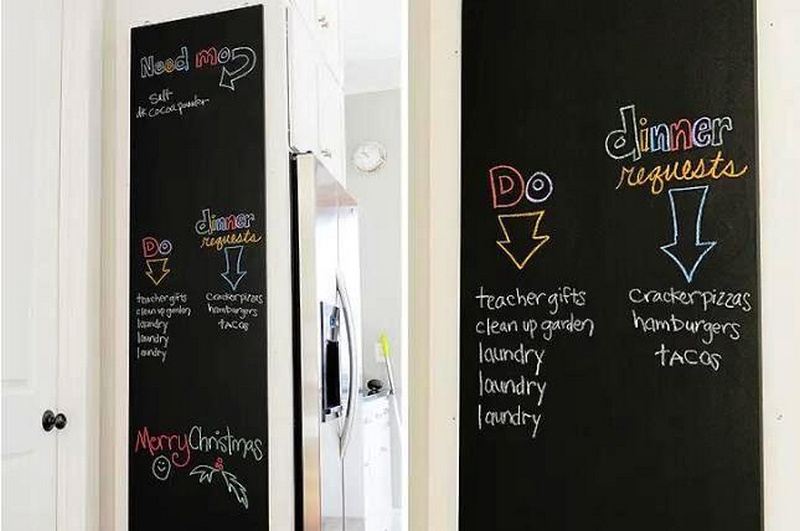 Need mo
Salt
dk cocoa powder
Do
teacher gifts
clean up garden
laundry
laundry
laundry
dinner
requests
cracker pizzas
hamburgers
tacos
Merry Christmas
Do
teacher gifts
clean up garden
laundry
laundry
laundry
dinner
requests
cracker pizzas
hamburgers
tacos